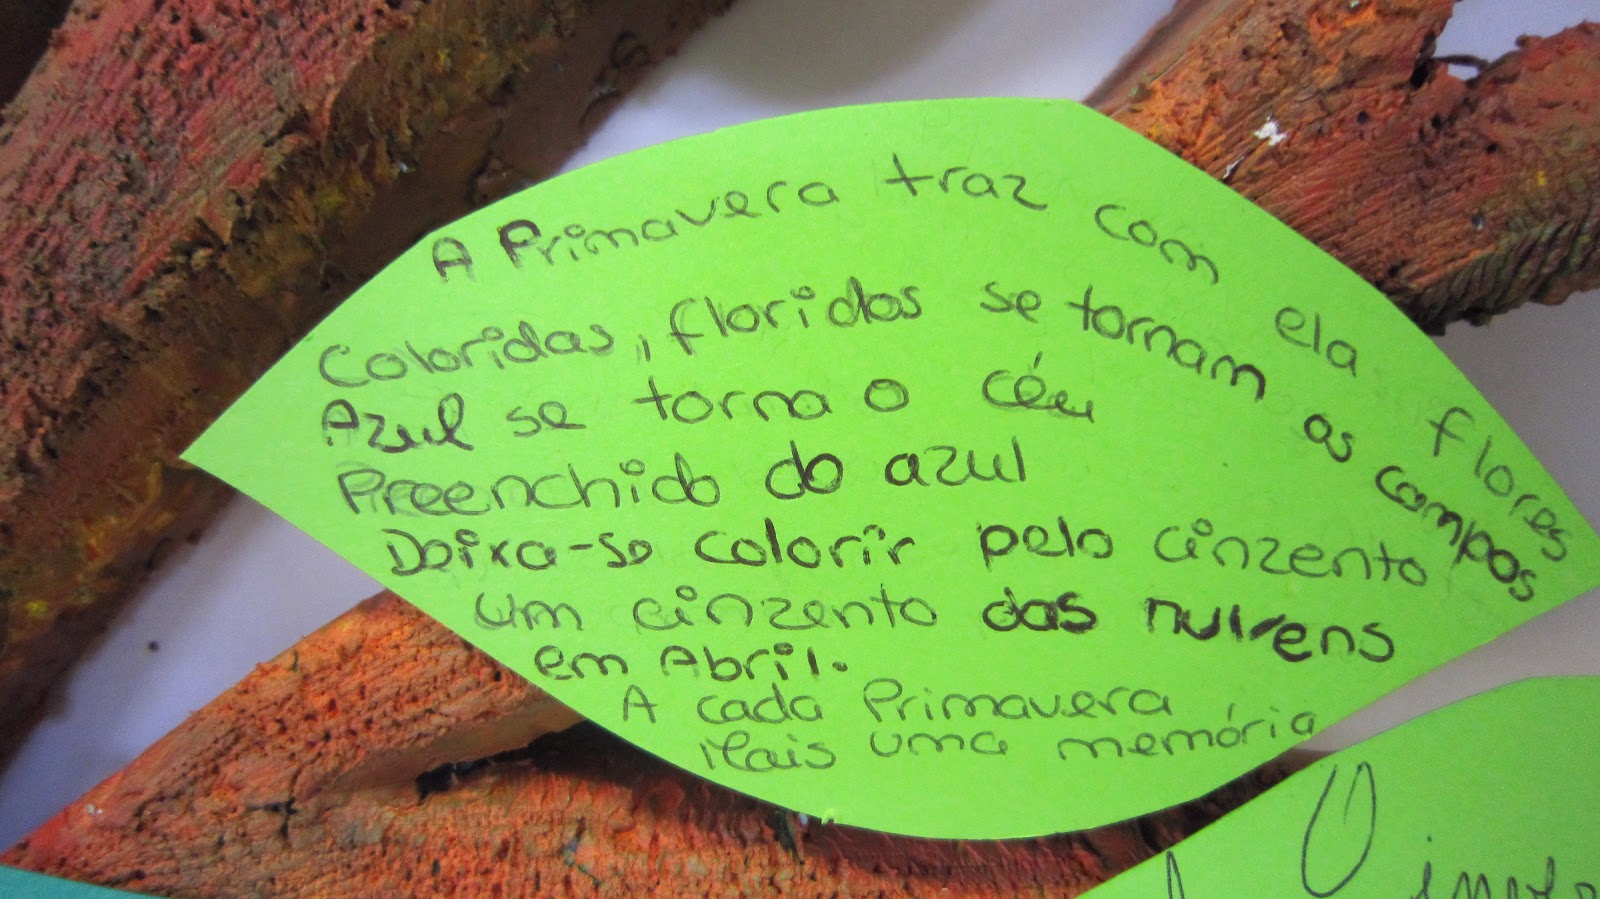 A Primavera traz com ela flores
Coloridas, floridos se tornam os campos
Azul se torna o céu
Preenchido do azul
Deixa-se colorir pelo cinzento
um cinzento das nuvens
em Abril.
A cada Primavera
Mais uma memória
O